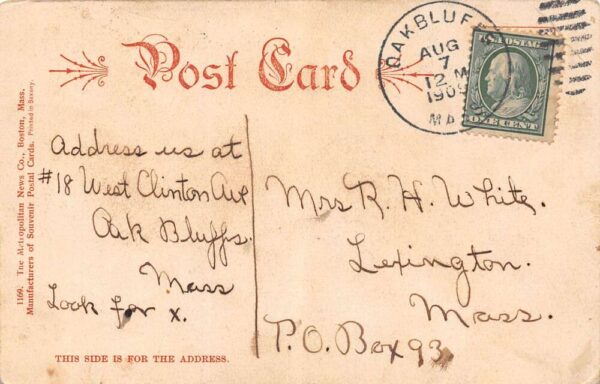 Post Card
OAK BLUFF
AUG
7
12 M
1909
MA
U.S. POSTAGE
ONE CENT
1169. The Metropolitan News Co., Boston, Mass.
Manufacturers of Souvenir Postal Cards. Printed in Saxony.
Address us at
#18 West Clinton Ave
Oak Bluffs.
Mass
Look for x.
Mrs R. H. White.
Lexington.
Mass.
P.O. Box 93
THIS SIDE IS FOR THE ADDRESS.